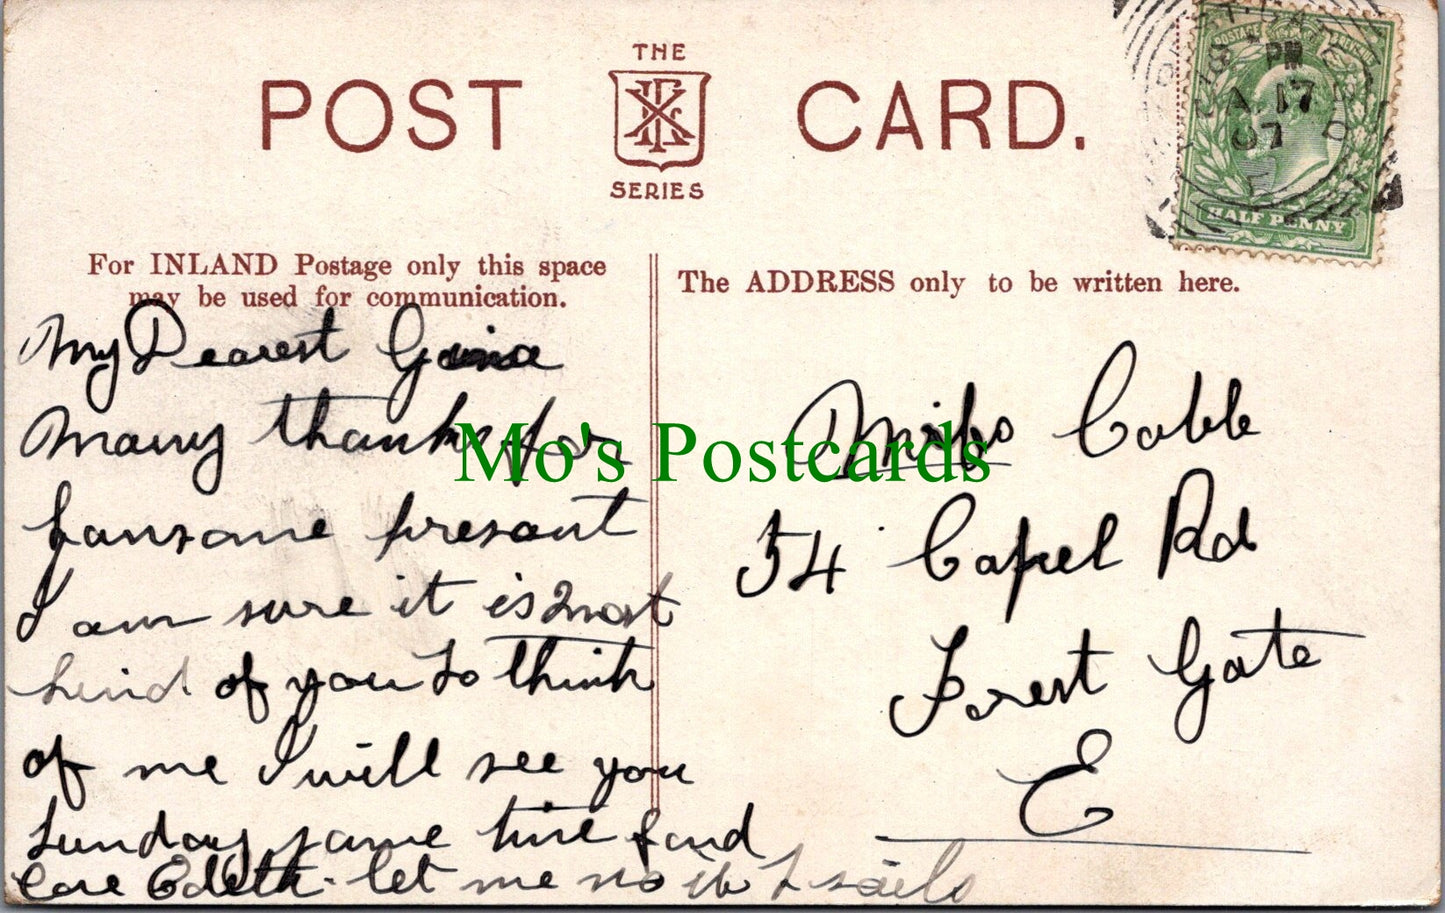 THE
POST CARD.
SERIES
PM
17
07
HALF PENNY
For INLAND Postage only this space
may be used for communication.
The ADDRESS only to be written here.
My Dearest
Many thanks for
hansome presant
I am sure it is most
kind of you to think
of me I will see you
Sunday same time fond
love Edeth. let me no it I
Miss Cobb
54 Capel Rd
Forest Gate
E
Mo's Postcards